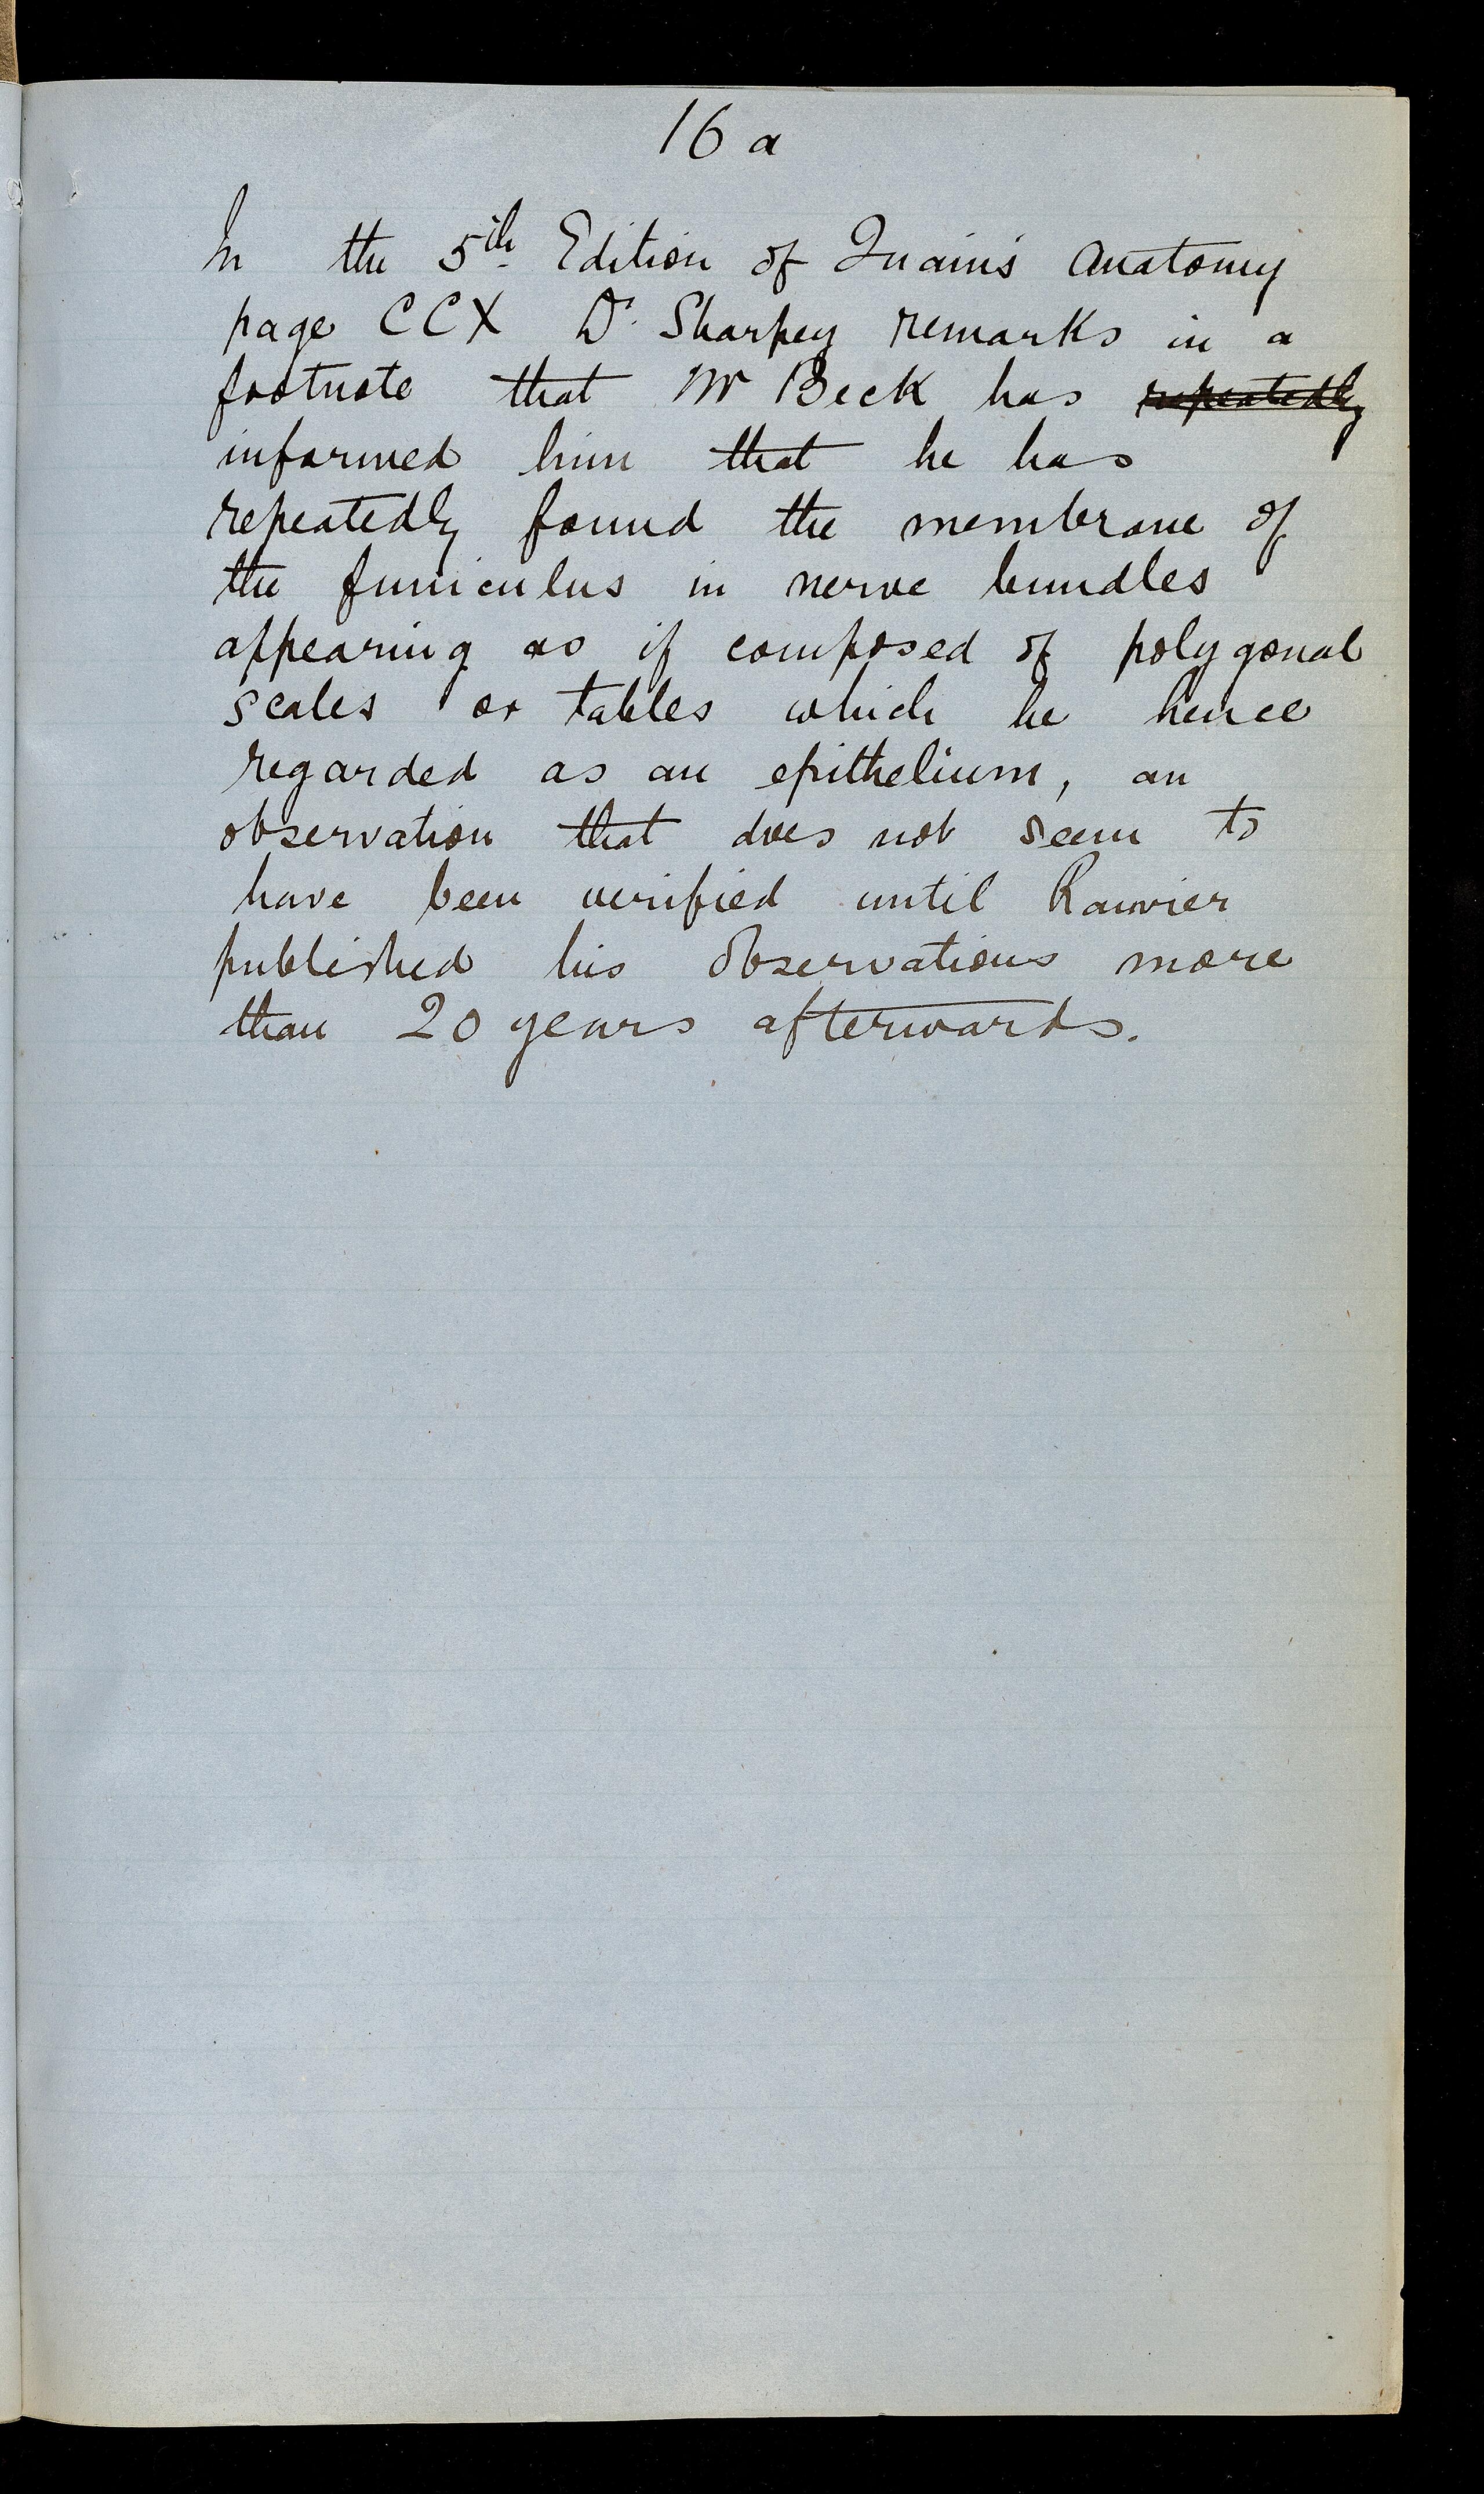 16 a
In the 5th Edition of Quain's Anatomy
page CCX Dr. Sharpey remarks in a
footnote that Mr Beck has repeatedly
informed him that he has
repeatedly found the membrane of
the funiculus in nerve bundles
appearing as if composed of polygonal
scales or tables which he hence
regarded as an epithelium, an
observation that does not seem to
have been verified until Ranvier
published his observations more
than 20 years afterwards.